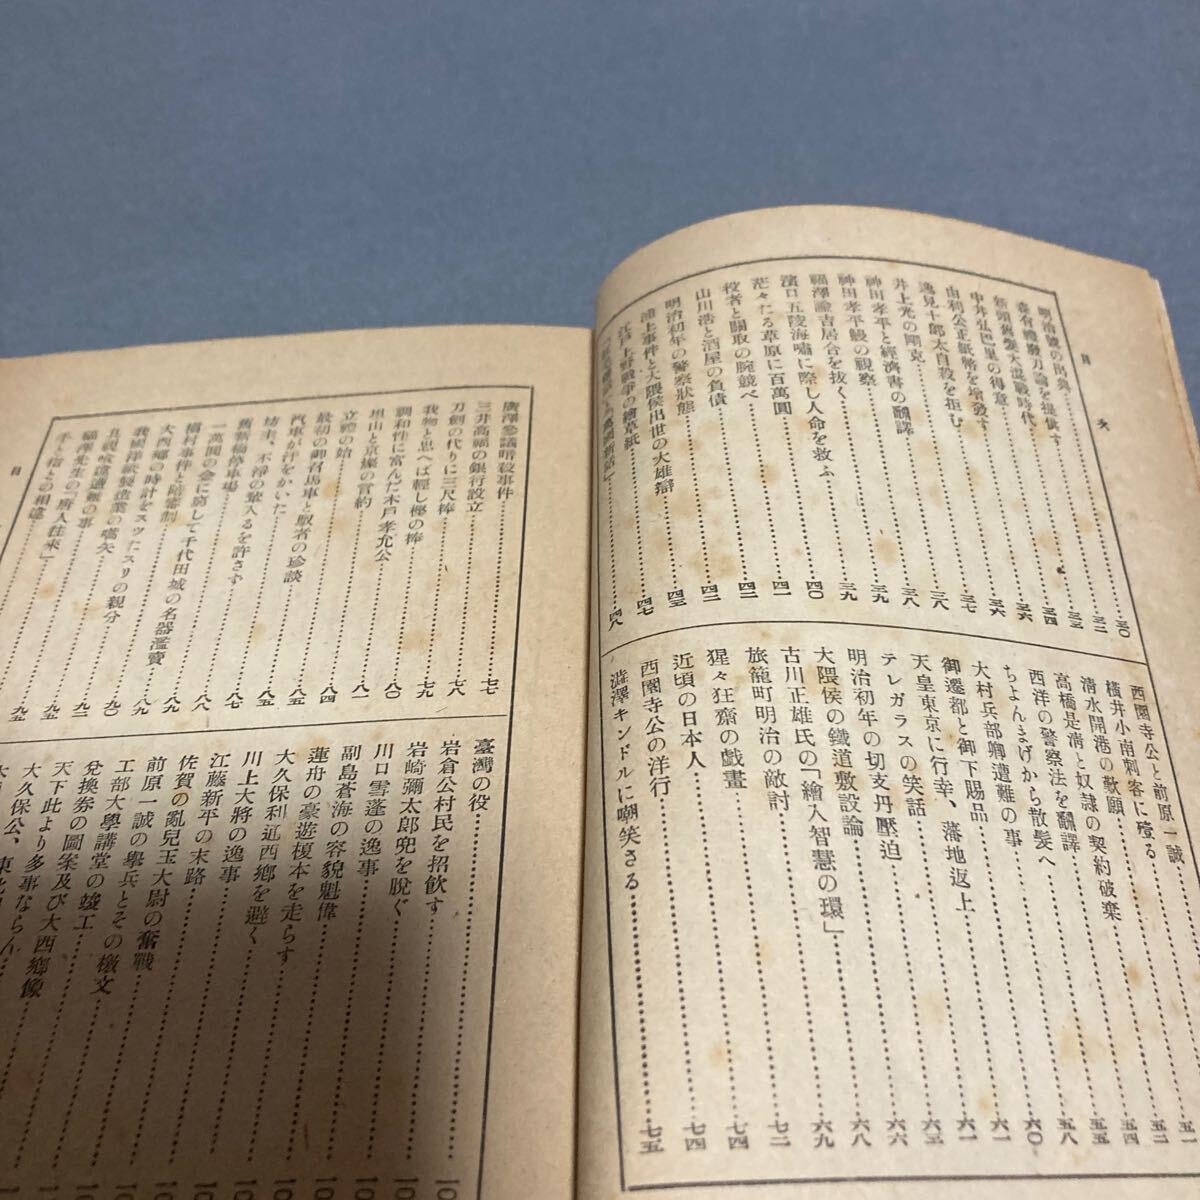 目次
明治號の出典……三〇
森有禮廢刀論を提議す……三二
新頭舊藥大混戰時代……三四
中井弘巴里の得意……三六
由利公正紙幣を増發す……三六
逸見十郎太自殺を拒む……三七
井上光の剛克……三八
神田孝平と經濟書の飜譯……三八
神田孝平鰻の觀察……三九
福澤諭吉居合を拔く……三九
濱口五陵海嘯に際し人命を救ふ……四〇
茫々たる草原に百萬圓……四一
役者と關取の腕競べ……四二
山川浩と酒屋の負債……四二
明治初年の警察狀態……四三
浦上事件と大隈侯出世の大雄辯
江戸上野戰爭の繪草紙……四七
……四八
西園寺公と前原一誠……五一
横井小楠刺客に殪る……五二
清水開港の歎願……五四
高橋是清と奴隷の契約破棄……五五
西洋の警察法を飜譯……五八
ちよんまげから散髮へ……六〇
大村兵部卿遭難の事……六一
御遷都と御下賜品……六一
天皇東京に行幸、藩地返上……六三
テレガラスの笑話……六六
明治初年の切支丹壓迫……六八
大隈侯の鐵道敷設論……六九
古川正雄氏の「繪入智慧の環」
旅籠町明治の敵討……七二
猩々狂齋の戯畫……七四
近頃の日本人……七四
西園寺公の洋行
澁澤キンドルに嘲笑さる……七五
廣澤參議暗殺事件……七七
三井高福の銀行設立……七七
刀劍の代りに三尺棒……七八
我物と思へば輕し樫の棒……七九
調和性に富んだ木戸孝允公……八〇
坦山と京燦の言約……八一
立禮の始……八二
最初の御召馬車と馭者の珍談……八四
汽車が汗をかいた……八五
坊主、不淨の輩入るを許さず……八五
舊新橋停車場……八七
一萬圓の金に窮して千代田城の名器濫賣……八八
槇村事件と陪審制……八九
大西郷の時計をスツたスリの親分……八九
我國洋紙製造業の嚆矢……九〇
岩倉公喰違遭難の事……九二
福澤先生の「唐人往來」……九五
手と指との相違……九五
臺灣の役
岩倉公村民を招飲す
岩崎彌太郎兜を脱ぐ
川口雪蓬の逸事
副島蒼海の容貌魁偉
蓮舟の豪遊榎本を走らす
大久保利通西郷を避く
川上大將の逸事
江藤新平の末路
佐賀の亂兒玉大尉の奮戰
前原一誠の擧兵とその檄文
工部大學講堂の竣工
兌換券の圖案及び大西郷像
天下此より多事ならん
大久保公、東北
目